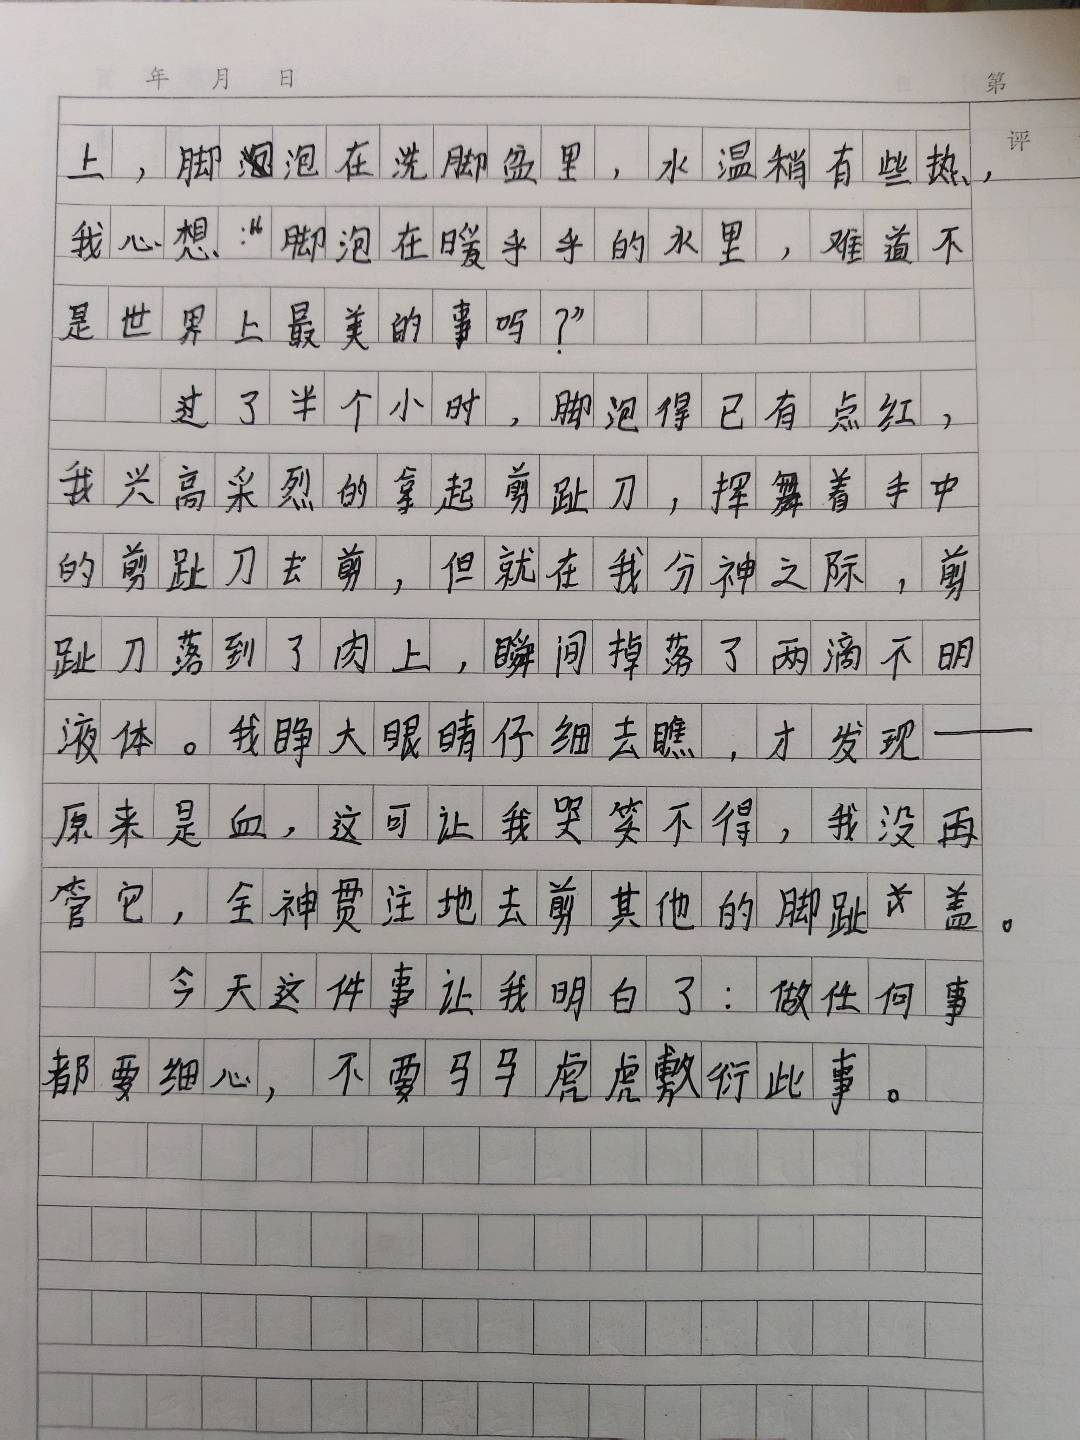 年 月 日 第
评
上，脚泡在洗脚盆里，水温稍有些热，
我心想：“脚泡在暖乎乎的水里，难道不
是世界上最美的事吗？”
过了半个小时，脚泡得已有点红，
我兴高采烈的拿起剪趾刀，挥舞着手中
的剪趾刀去剪，但就在我分神之际，剪
趾刀落到了肉上，瞬间掉落了两滴不明
液体。我睁大眼睛仔细去瞧，才发现——
原来是血，这可让我哭笑不得，我没再
管它，全神贯注地去剪其他的脚趾盖。
今天这件事让我明白了：做任何事
都要细心，不要马马虎虎敷衍此事。